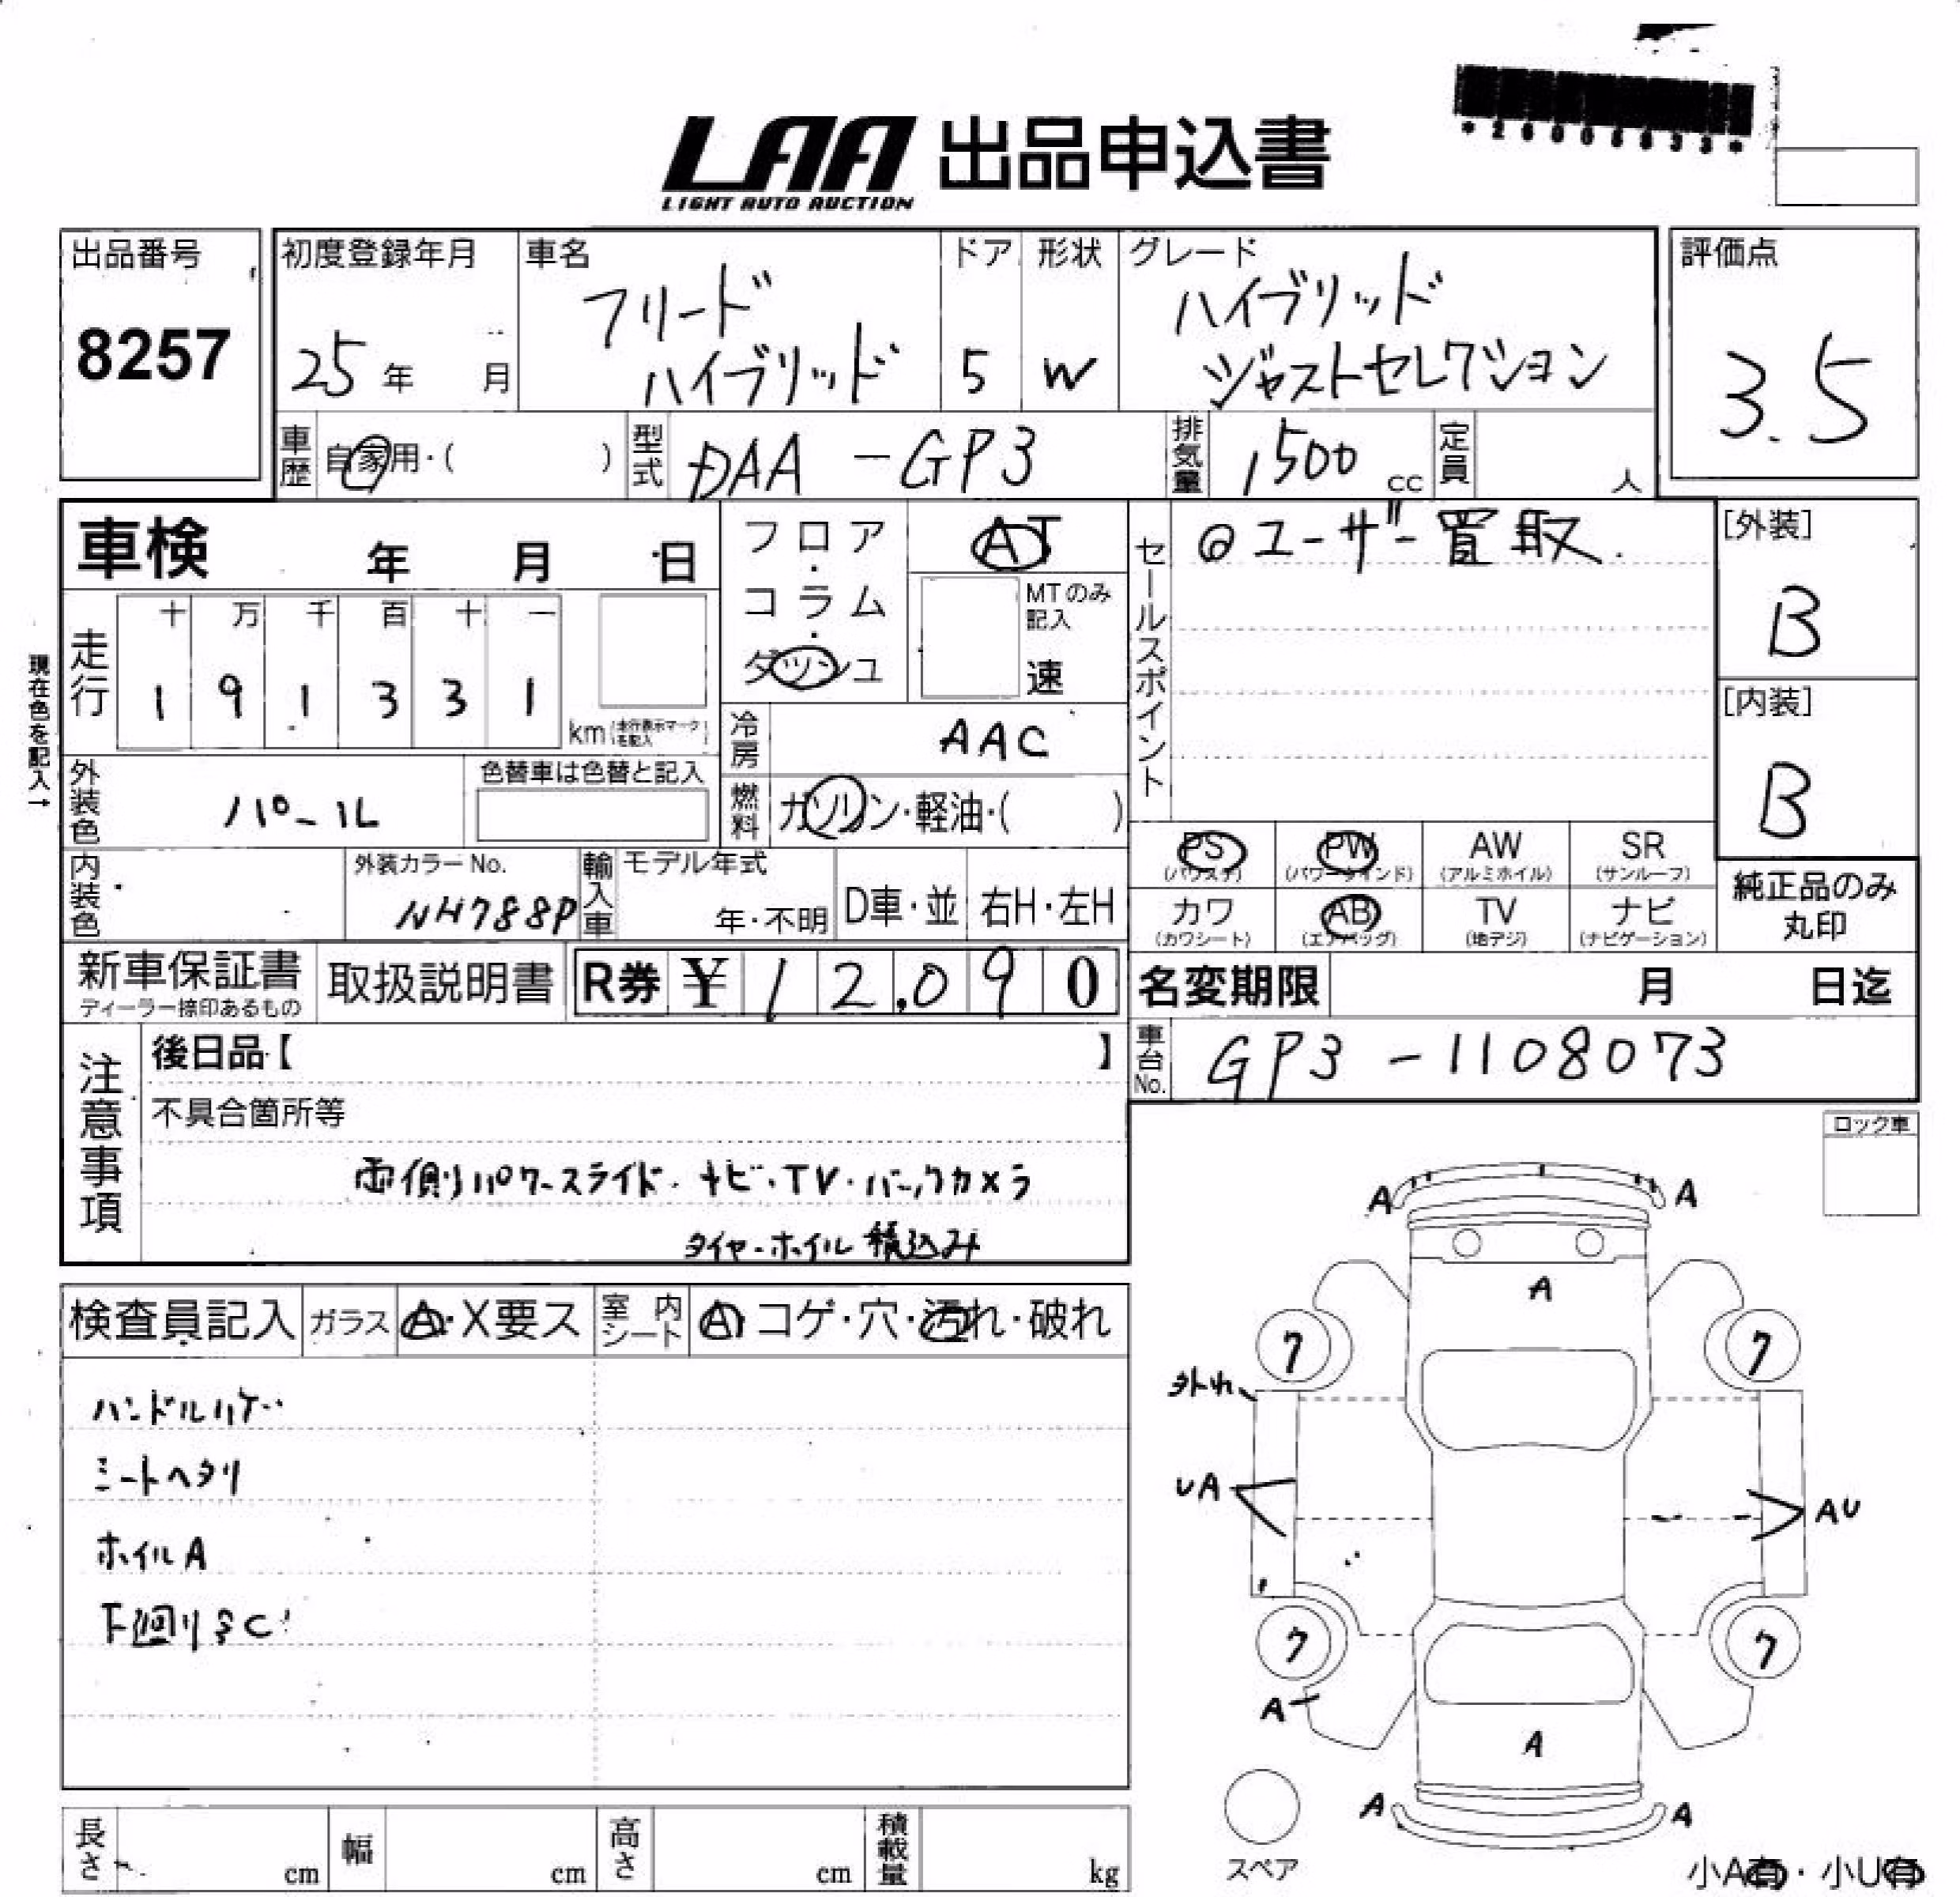 *26006833*
LAA 出品申込書
LIGHT AUTO AUCTION
出品番号
8257
初度登録年月
25年 月
車名
フリード
ハイブリッド
ドア
5
形状
W
グレード
ハイブリッド
ジャストセレクション
評価点
3.5
車歴 自家用・( )
型式 DAA-GP3
排気量 1500 cc
定員 人
車検 年 月 日
フロア・コラム・ダッシュ
AT
MTのみ記入
速
セールスポイント
◎ユーザー買取.
[外装]
B
[内装]
B
現在色を記入→
走行
十 万 千 百 十 一
1 9 1 3 3 1
km (走行表示マークを記入)
冷房 AAC
外装色 パール
色替車は色替と記入
燃料 ガソリン・軽油・( )
PS (パワステ)
PW (パワーウインド)
AW (アルミホイル)
SR (サンルーフ)
カワ (カワシート)
AB (エアバッグ)
TV (地デジ)
ナビ (ナビゲーション)
純正品のみ
丸印
内装色
外装カラーNo.
NH788P
輸入車
モデル年式
年・不明
D車・並
右H・左H
新車保証書
ディーラー捺印あるもの
取扱説明書
R券 ¥12,090
名変期限 月 日迄
車台No. GP3-1108073
注意事項
後日品【 】
不具合箇所等
両側パワースライド・ナビ・TV・バックカメラ
タイヤ・ホイル 積込み
ロック車
検査員記入
ガラス A・X要ス
室内シート A・コゲ・穴・汚れ・破れ
ハンドルハゲ
シートヘタリ
ホイルA
下廻りSC
A A
A
ワ ワ
外れ
UA AU
ワ ワ
A
A
A A
スペア
小A有・小U有
長さ cm
幅 cm
高さ cm
積載量 kg